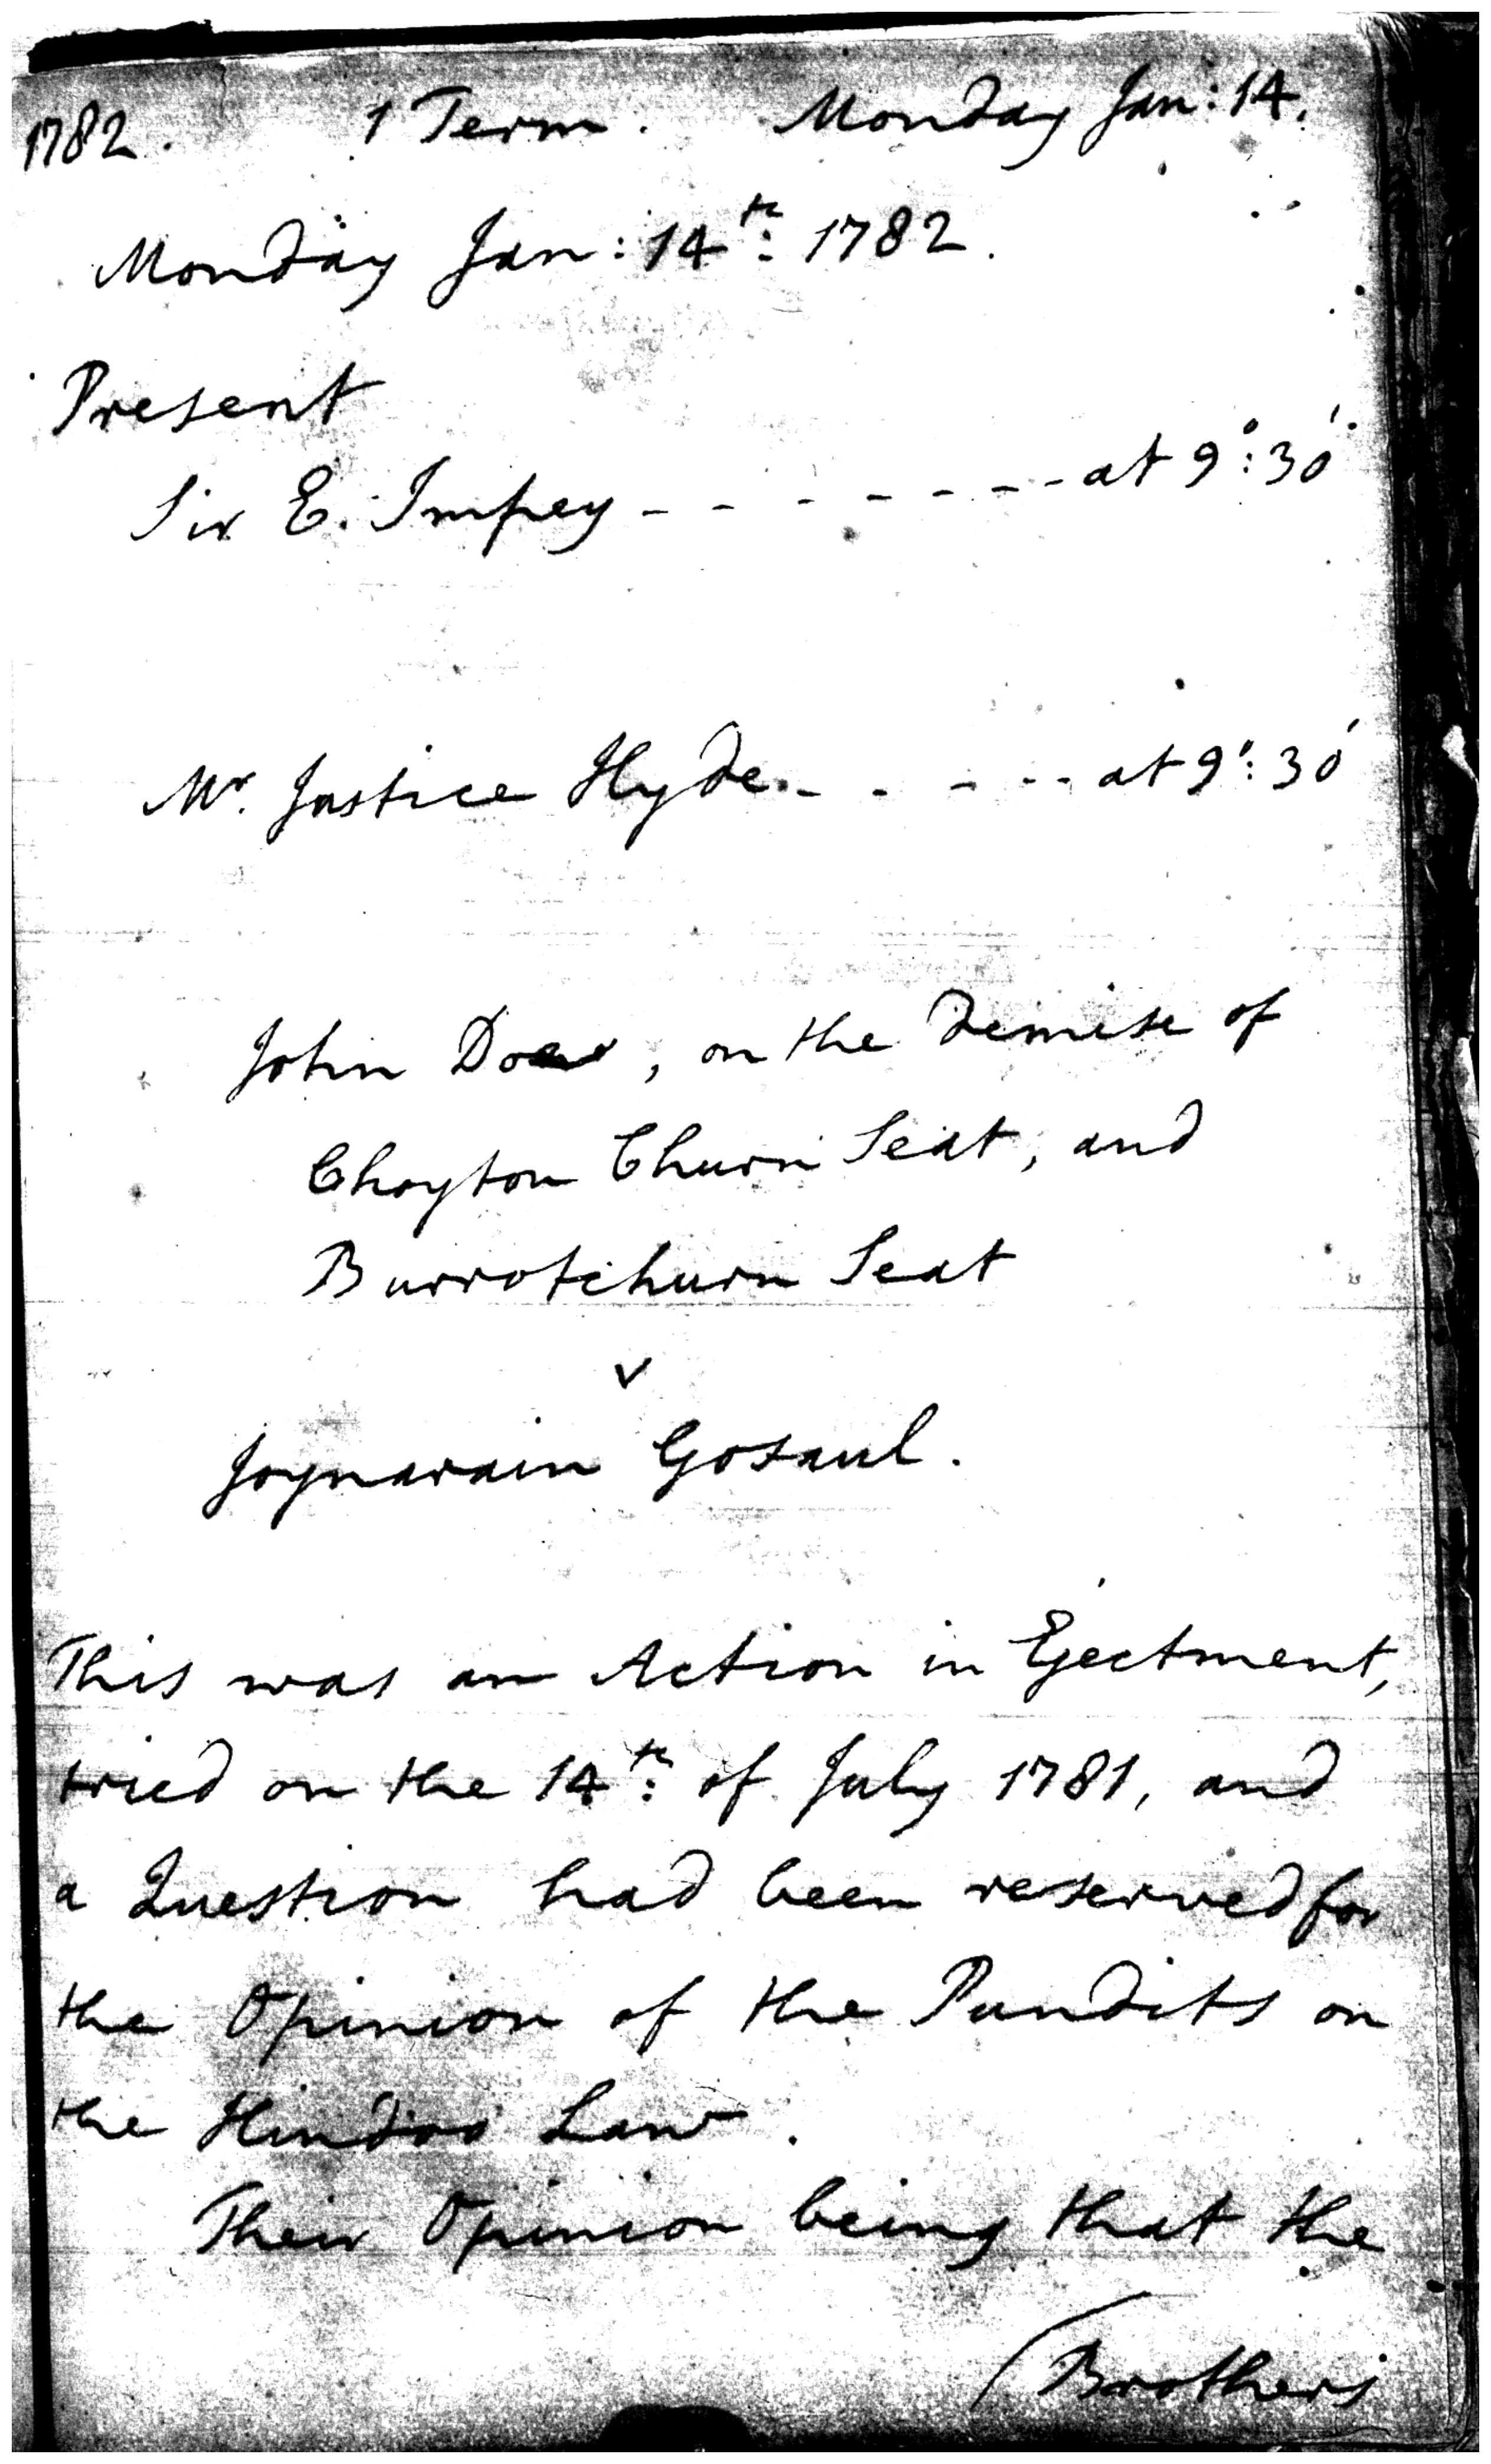 1782. 1 Term. Monday Jan: 14.
Monday Jan: 14th: 1782.
Present
Sir E. Impey - - - - - - - at 9°: 30'
Mr. Justice Hyde - - - - - at 9°: 30'
John Doe, on the Demise of
Choyton Churn Seat, and
Burrotchurn Seat
v
Joynarain Gosaul.
This was an Action in Ejectment,
tried on the 14th: of July 1781, and
a Question had been reserved for
the Opinion of the Pundits on
the Hindoo Law.
Their Opinion being that the
Brothers